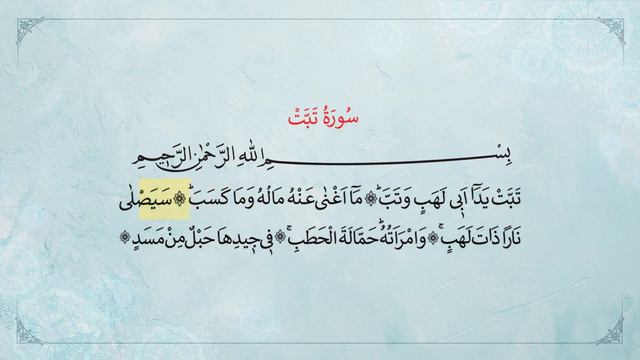 سُورَةُ تَبَّتْ
بِسْمِ اللهِ الرَّحْمٰنِ الرَّحِيمِ
تَبَّتْ يَدَٓا اَبٖي لَهَبٍ وَتَبَّۜ ❁ مَٓا اَغْنٰى عَنْهُ مَالُهُ وَمَا كَسَبَۜ ❁ سَيَصْلٰى
نَارًا ذَاتَ لَهَبٍۚ ❁ وَامْرَاَتُهُۜ حَمَّالَةَ الْحَطَبِۚ ❁ فٖي جٖيدِهَا حَبْلٌ مِنْ مَسَدٍ ❁